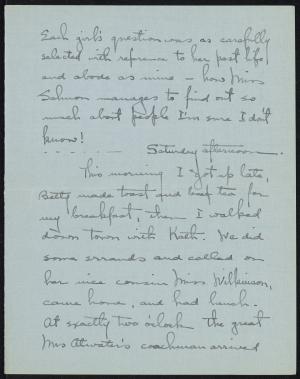 Each girl's question was as carefully
selected with reference to her past life
and abode as mine - how Miss
Salmon manages to find out so
much about people I'm sure I don't
know!
- - - - - - - Saturday afternoon -
This morning I got up late,
Betty made toast and beef tea for
my breakfast, then I walked
down town with Kath. We did
some errands and called on
her nice cousin Miss Wilkinson,
came home, and had lunch.
At exactly two o'clock the great
Mrs Atwater's coachman arrived